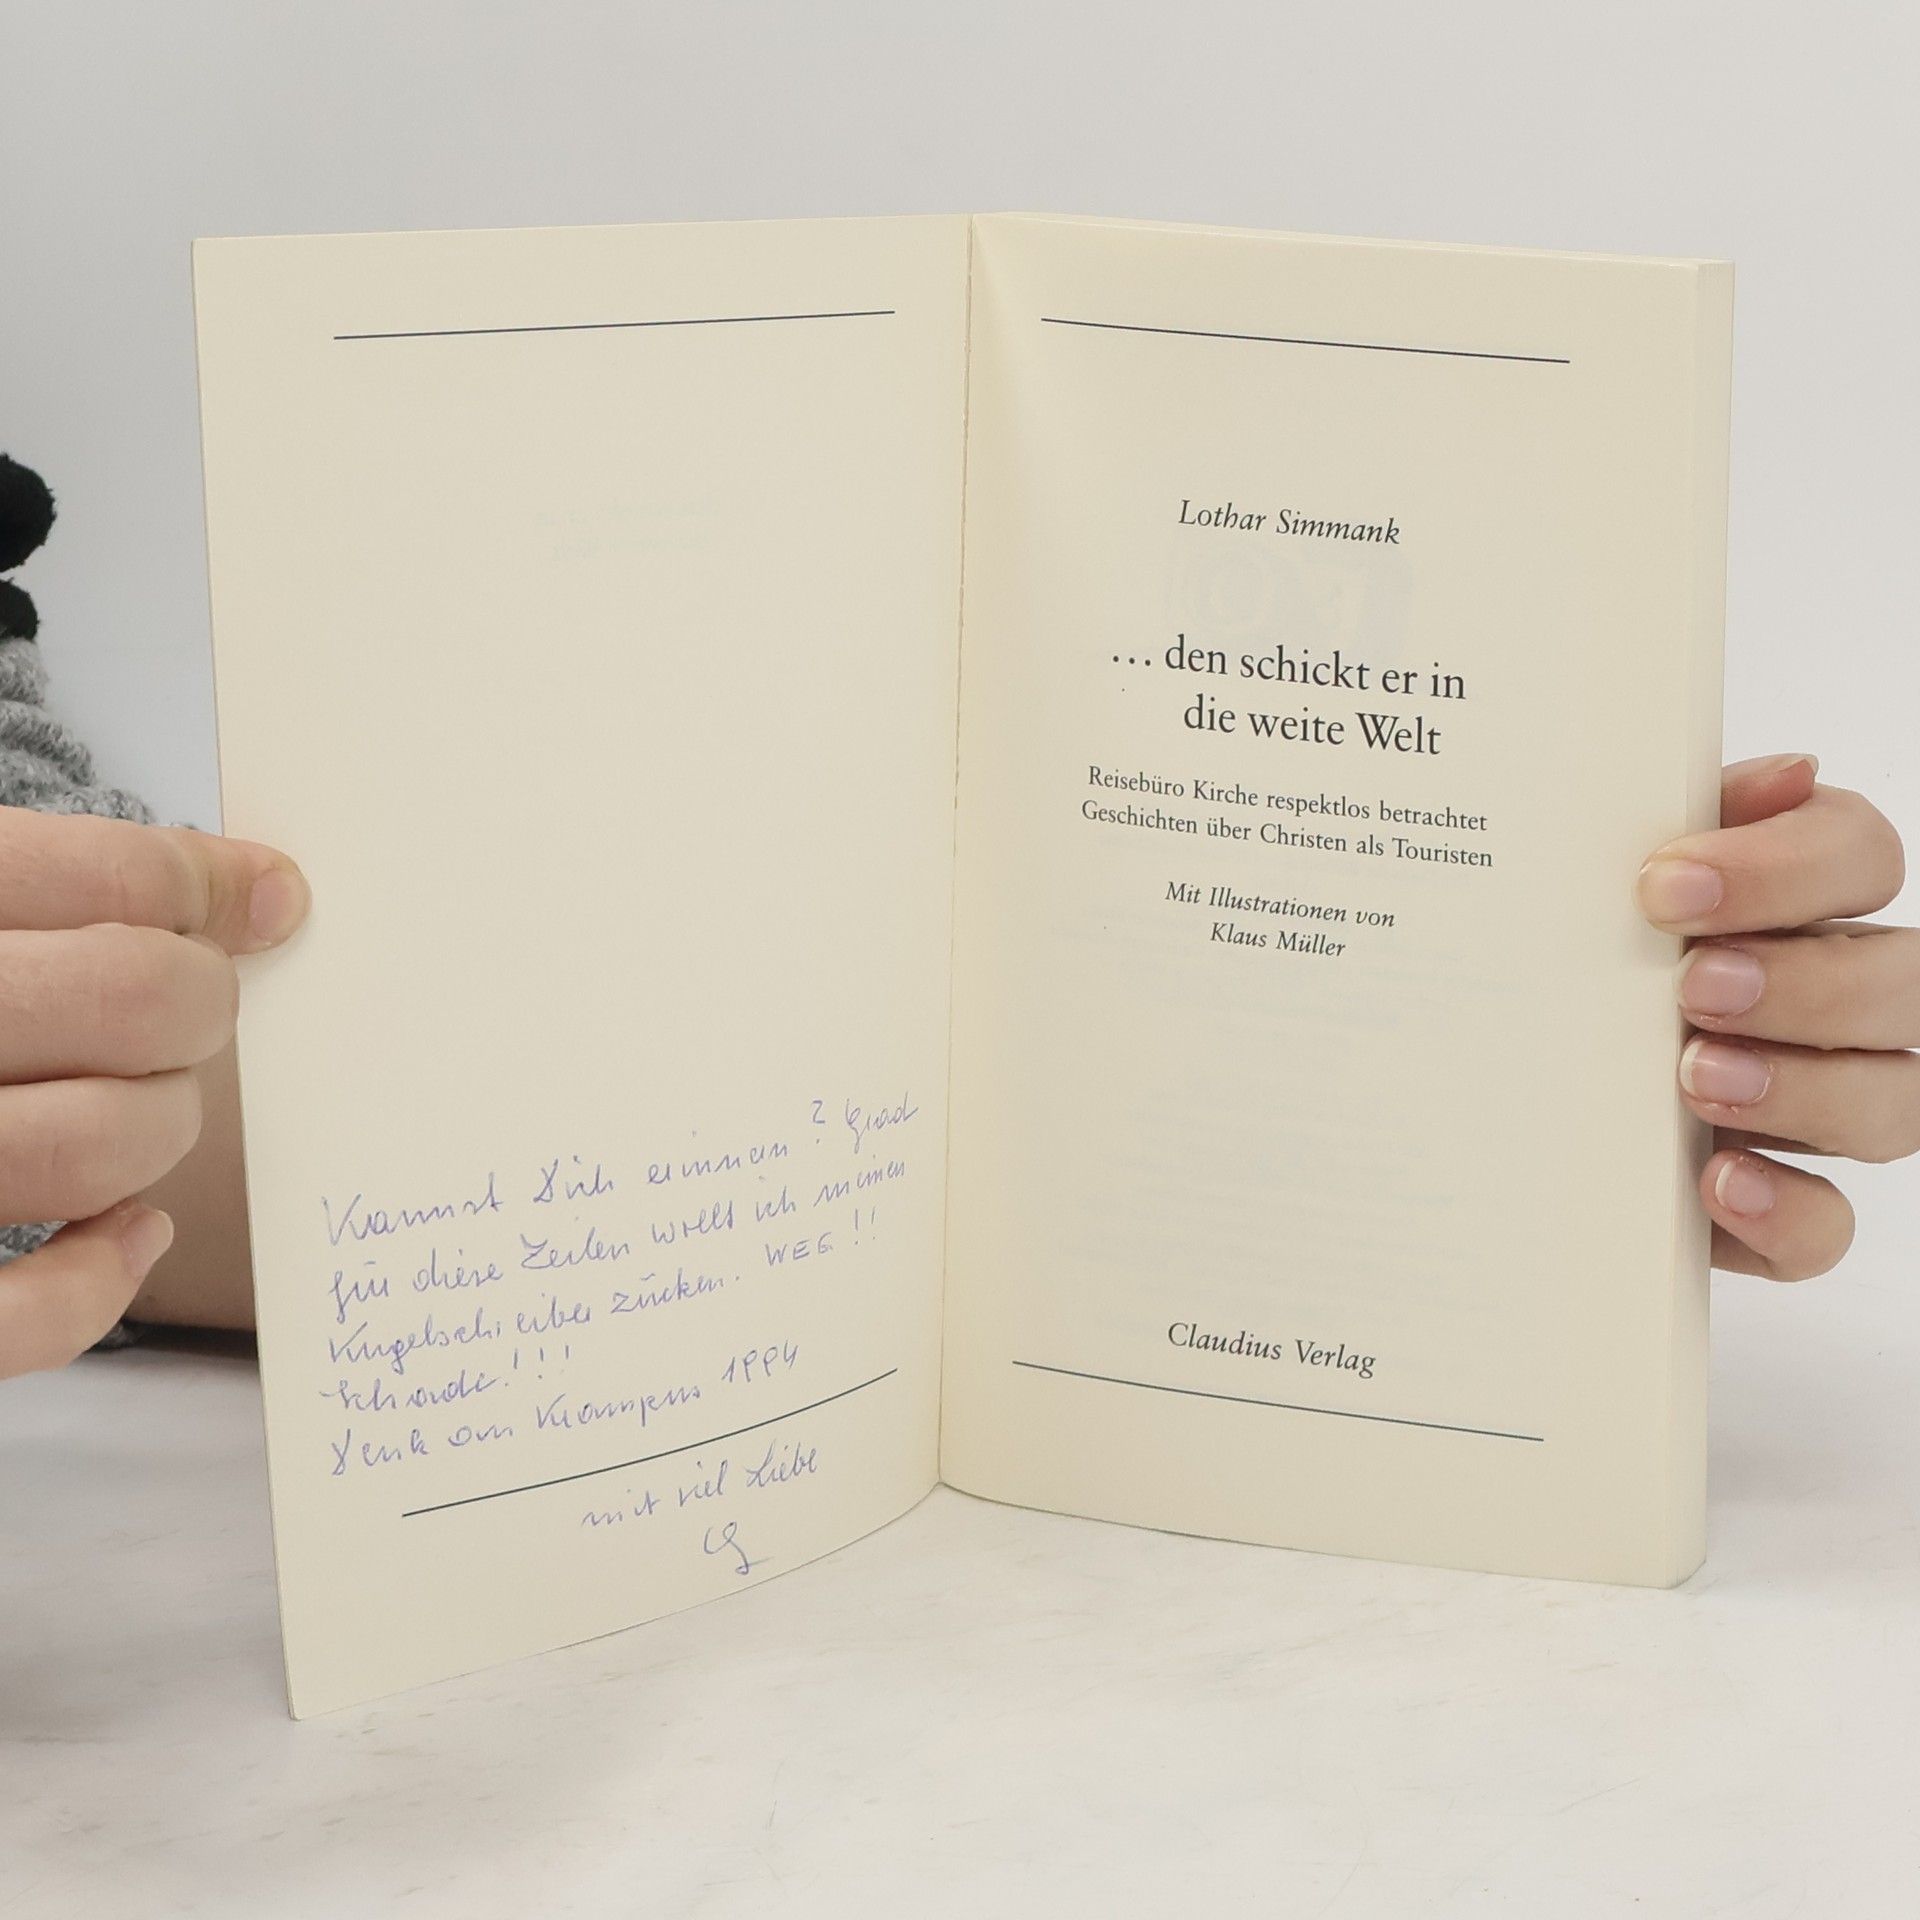 Kannst Dich erinnern? Grad
für diese Zeilen wollt ich meinen
Kugelschreiber zücken. WEG!!
Schade!!!
Denk an 1994
mit viel Liebe
Lothar Simmank
... den schickt er in
die weite Welt
Reisebüro Kirche respektlos betrachtet
Geschichten über Christen als Touristen
Mit Illustrationen von
Klaus Müller
Claudius Verlag